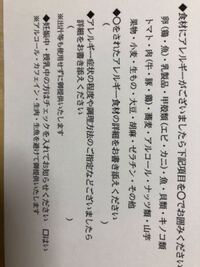 ◆食材にアレルギーがございましたら下記項目を〇でお囲みください
卵(鶏・魚)・乳製品・甲殻類(エビ・カニ)・魚・貝類・キノコ類
トマト・肉(牛・豚・鶏)・蕎麦・アルコール・ナッツ類・山芋
果物・小麦・生もの・大豆・胡麻・ゼラチン・その他
◆〇をされたアレルギー食材の詳細をお書き添えください
(　　　)
◆アレルギー症状の程度や調理方法のご指定などございましたら
詳細をお書き添えください(　　　)
※出汁等も使用せずに御提供いたします
◆妊娠中・授乳中の方はチェックを入れてお知らせください　口はい
※アルコール・カフェイン・生肉・生魚を避けて御提供いたします